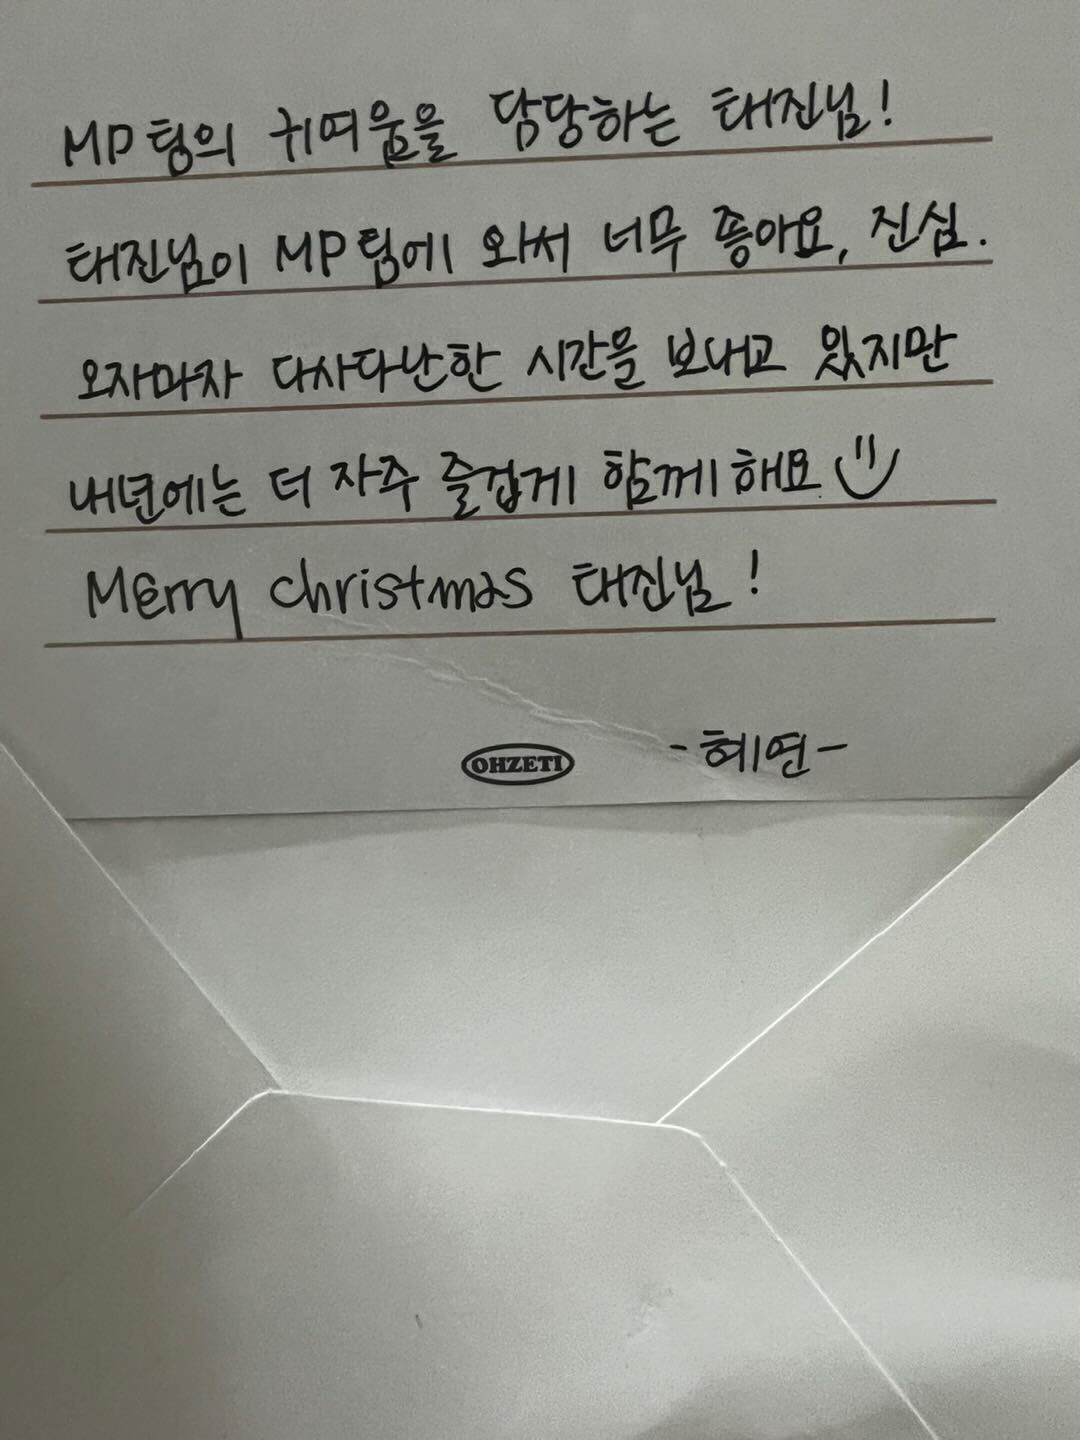 MP팀의 귀여움을 담당하는 태진님!
태진님이 MP팀에 와서 너무 좋아요, 진심.
오자마자 다사다난한 시간을 보내고 있지만
내년에는 더 자주 즐겁게 함께해요
Merry christmas 태진님!
-혜연-
OHZETI